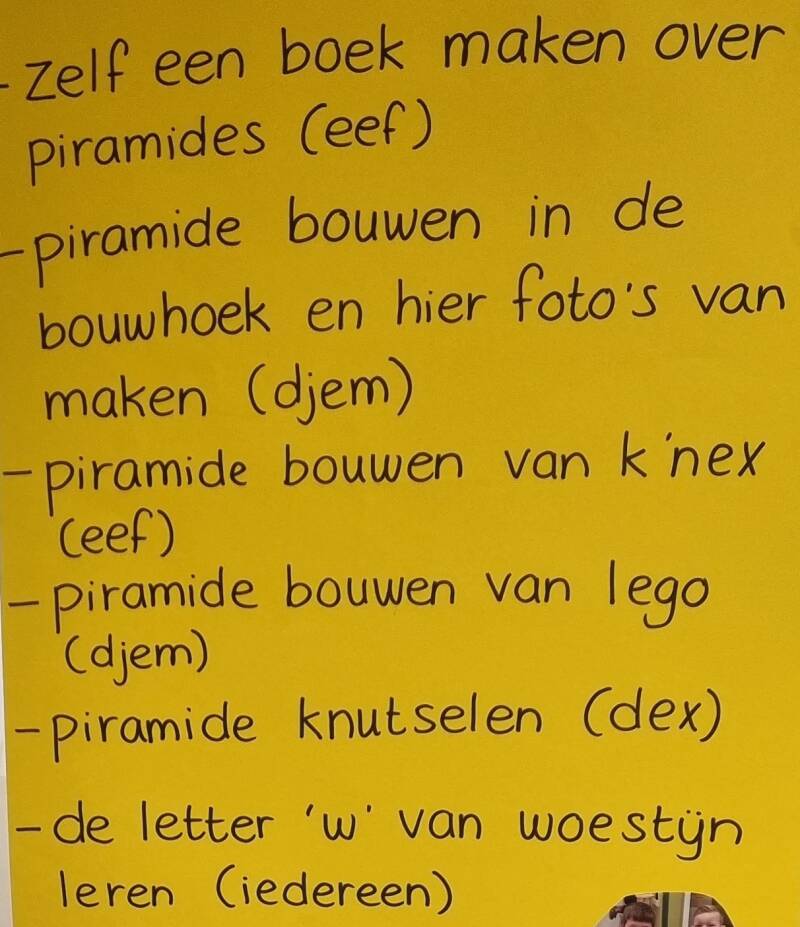 - zelf een boek maken over
piramides (eef)
- piramide bouwen in de
bouwhoek en hier foto's van
maken (djem)
- piramide bouwen van k'nex
(eef)
- piramide bouwen van lego
(djem)
- piramide knutselen (dex)
- de letter 'w' van woestijn
leren (iedereen)